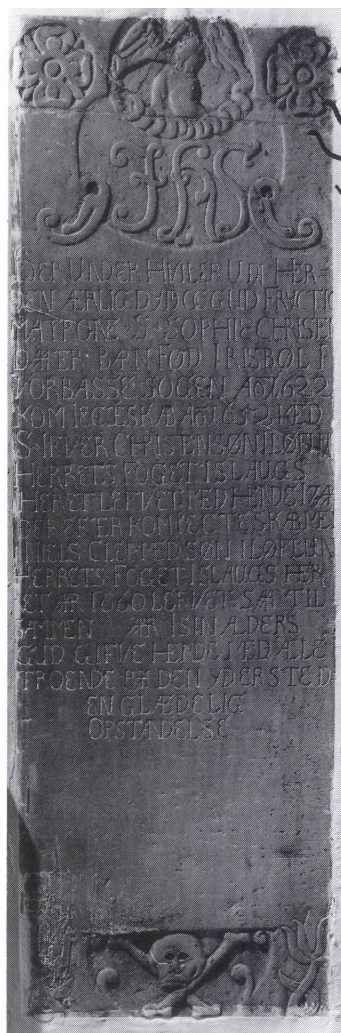 IHS
HER UNDER HVILER UDI HER-
REN ÆRLIG DYD OG GUD FRYCTIG
MATRONE S. SOPHIE CHRISEN
DAATER BARN FØD I RISBØL I
VORBASSE SOGEN Aō 1622
KOM I EGTESKAB Aō 1652 MED
S. IFVER CHRISTENSØN I LØFLUND
HERRETS FOGET I SLAUGS
HERET LEFVET MED HENDE
DER EFTER KOM I ECTESKAB MED
NIELS CLEMMEDSØN I LØFLUN
HERRETS FOGET I SLAUGS HER
RET AR 1660 LEFVET SAA TIL
SAMMEN AAR I SIN ALDERS
GUD GIFVE HENDE MED ALE
TROENDE PAA DEN YDERSTE D
EN GLÆDELIG
OPSTANDELSE